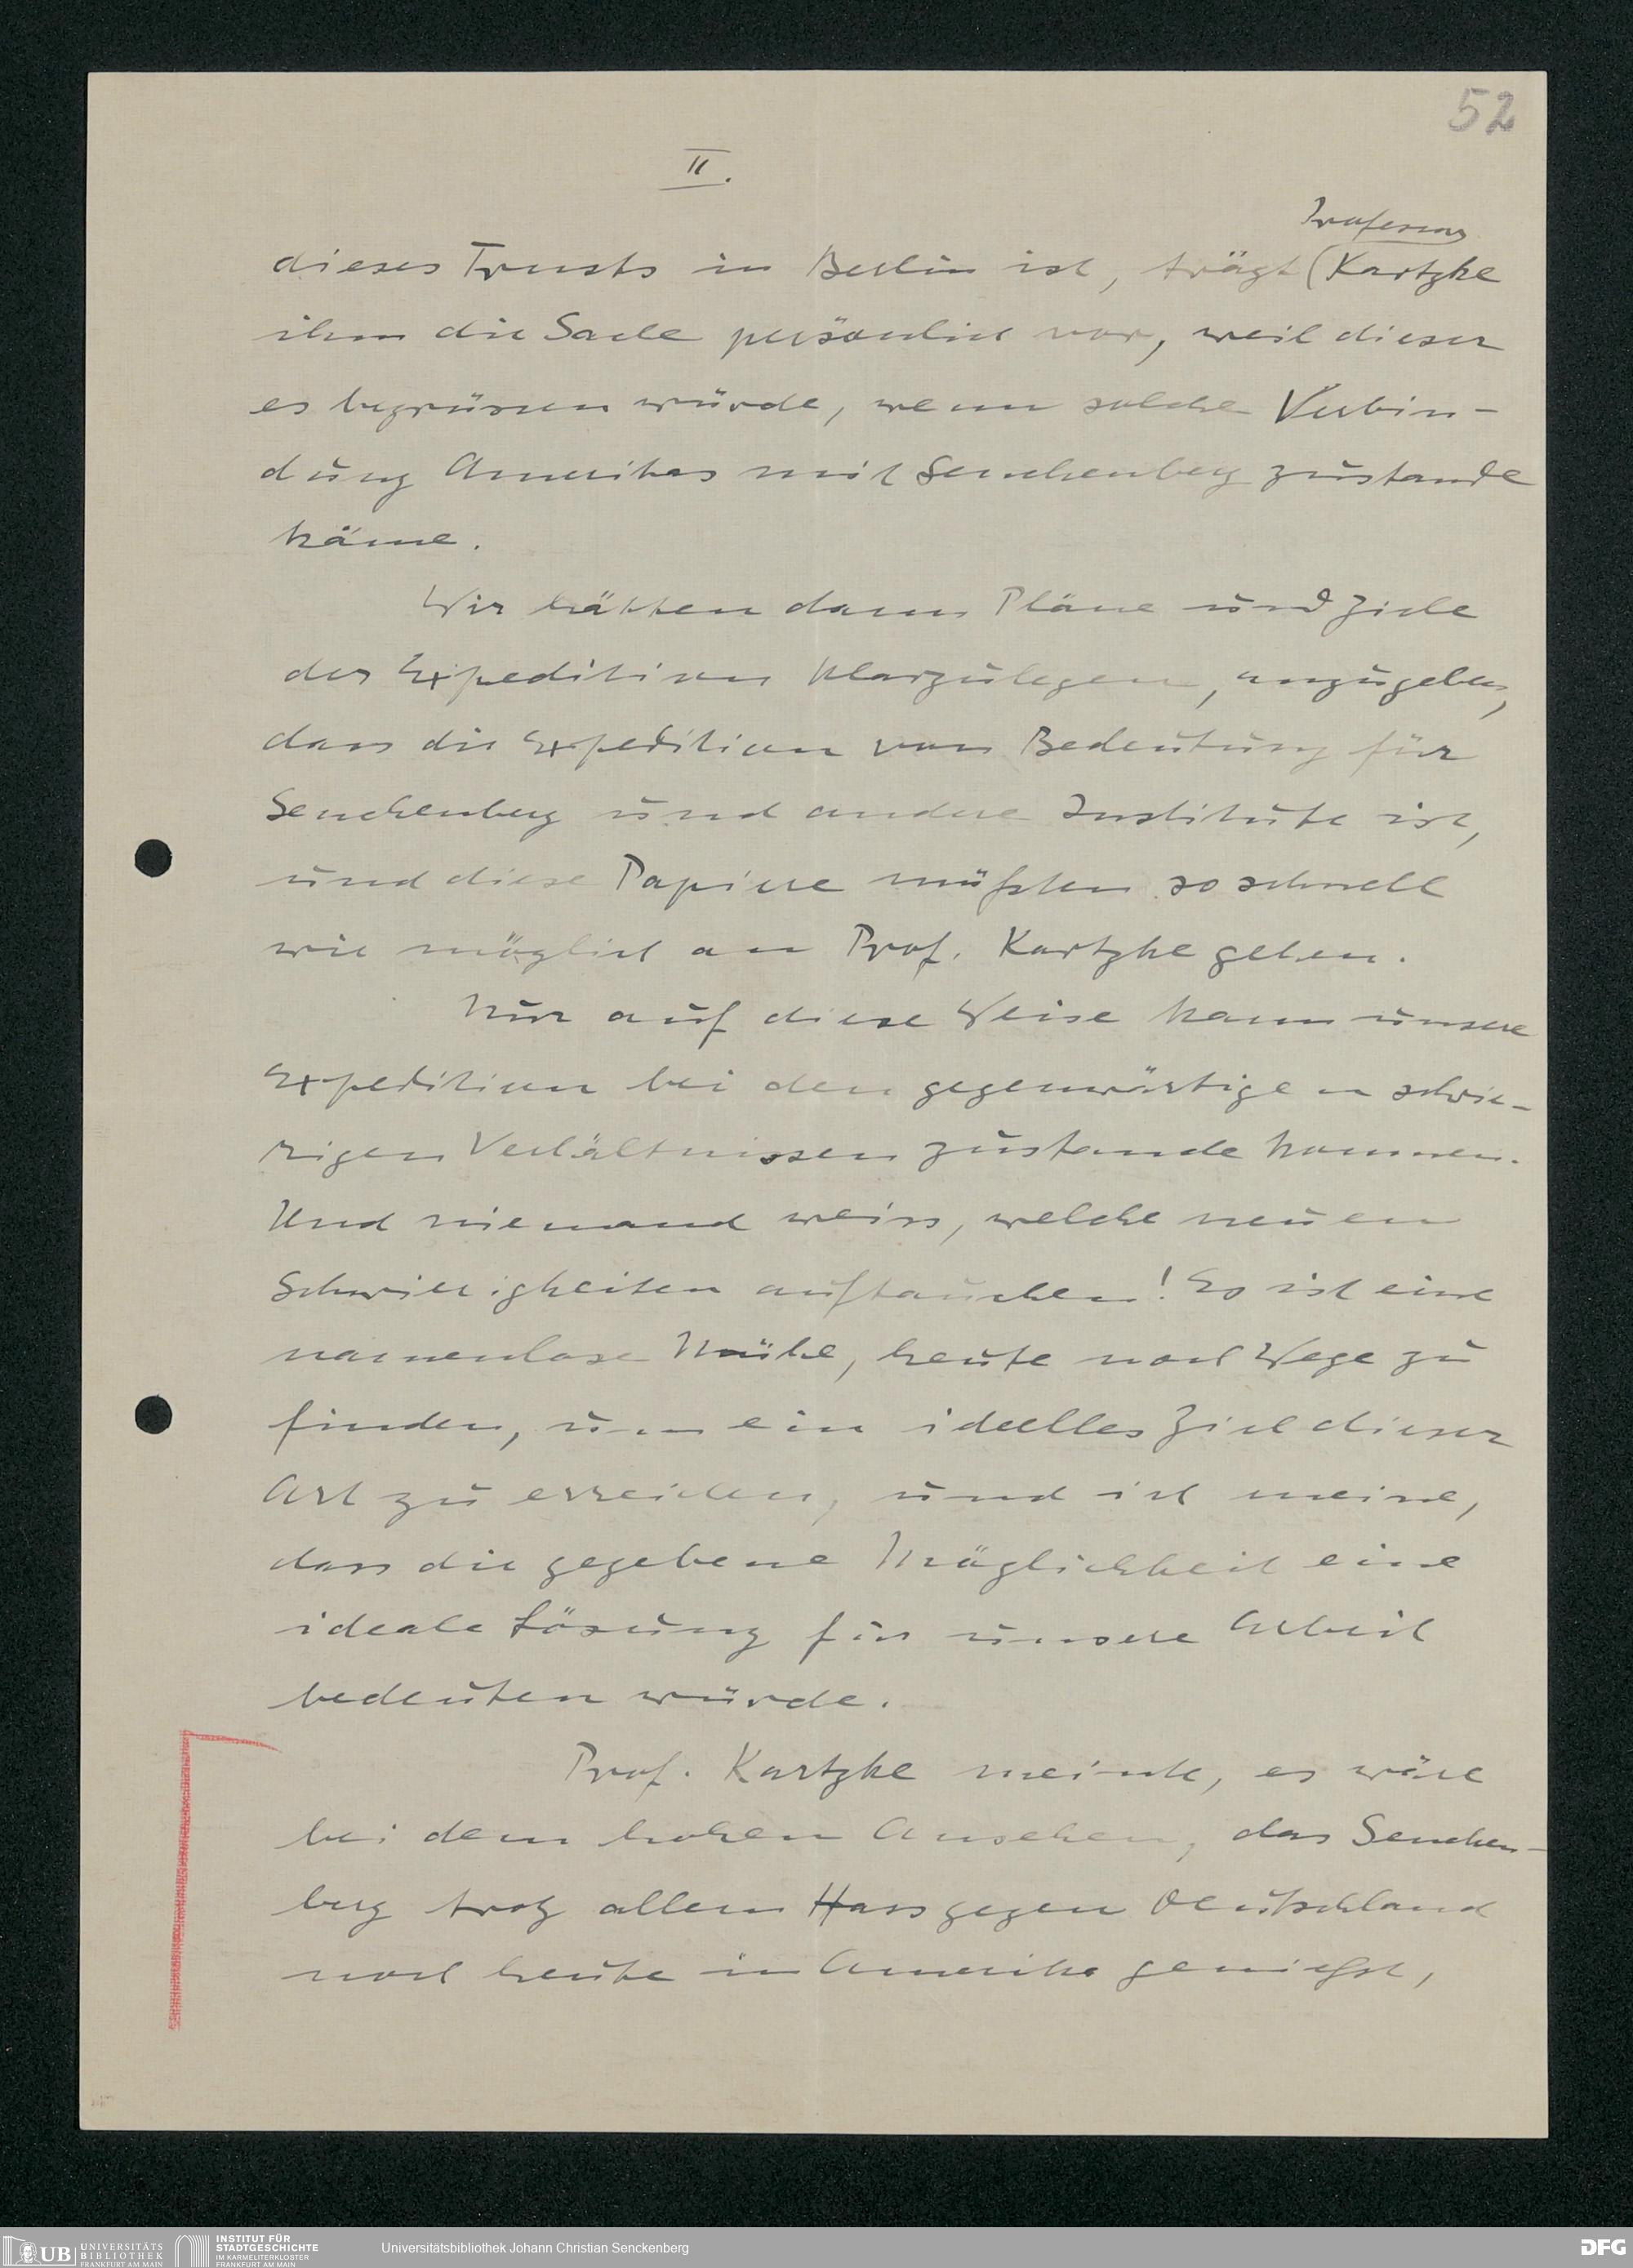 52
II.
Professor
dieses Trusts in Berlin ist, trägt (Kartzke
ihm die Sache persönlich vor, weil dieser
es begrüssen würde, wenn solche Verbin-
dung Amerikas mit Senckenberg zustande
käme.
Wir hätten dann Pläne und Ziele
der Expedition klarzulegen, anzugeben,
dass die Expedition von Bedeutung für
Senckenberg und andere Institute ist,
und diese Papiere müßten so schnell
wie möglich an Prof. Kartzke gehen.
Nur auf diese Weise kann unsere
Expedition bei den gegenwärtigen schwie-
rigen Verhältnissen zustande kommen.
Und niemand weiss, welche neuen
Schwierigkeiten auftauchen! Es ist eine
namenlose Mühe, heute noch Wege zu
finden, um ein ideelles Ziel dieser
Art zu erreichen, und ich meine,
dass die gegebene Möglichkeit eine
ideale Lösung für unsere Arbeit
bedeuten würde.
Prof. Kartzke meinte, es wäre
bei dem hohen Ansehen, das Sencken-
berg trotz allem Hass gegen Deutschland
noch heute in Amerika genießt,
UB UNIVERSITÄTS BIBLIOTHEK FRANKFURT AM MAIN
INSTITUT FÜR STADTGESCHICHTE IM KARMELITERKLOSTER FRANKFURT AM MAIN
Universitätsbibliothek Johann Christian Senckenberg
DFG